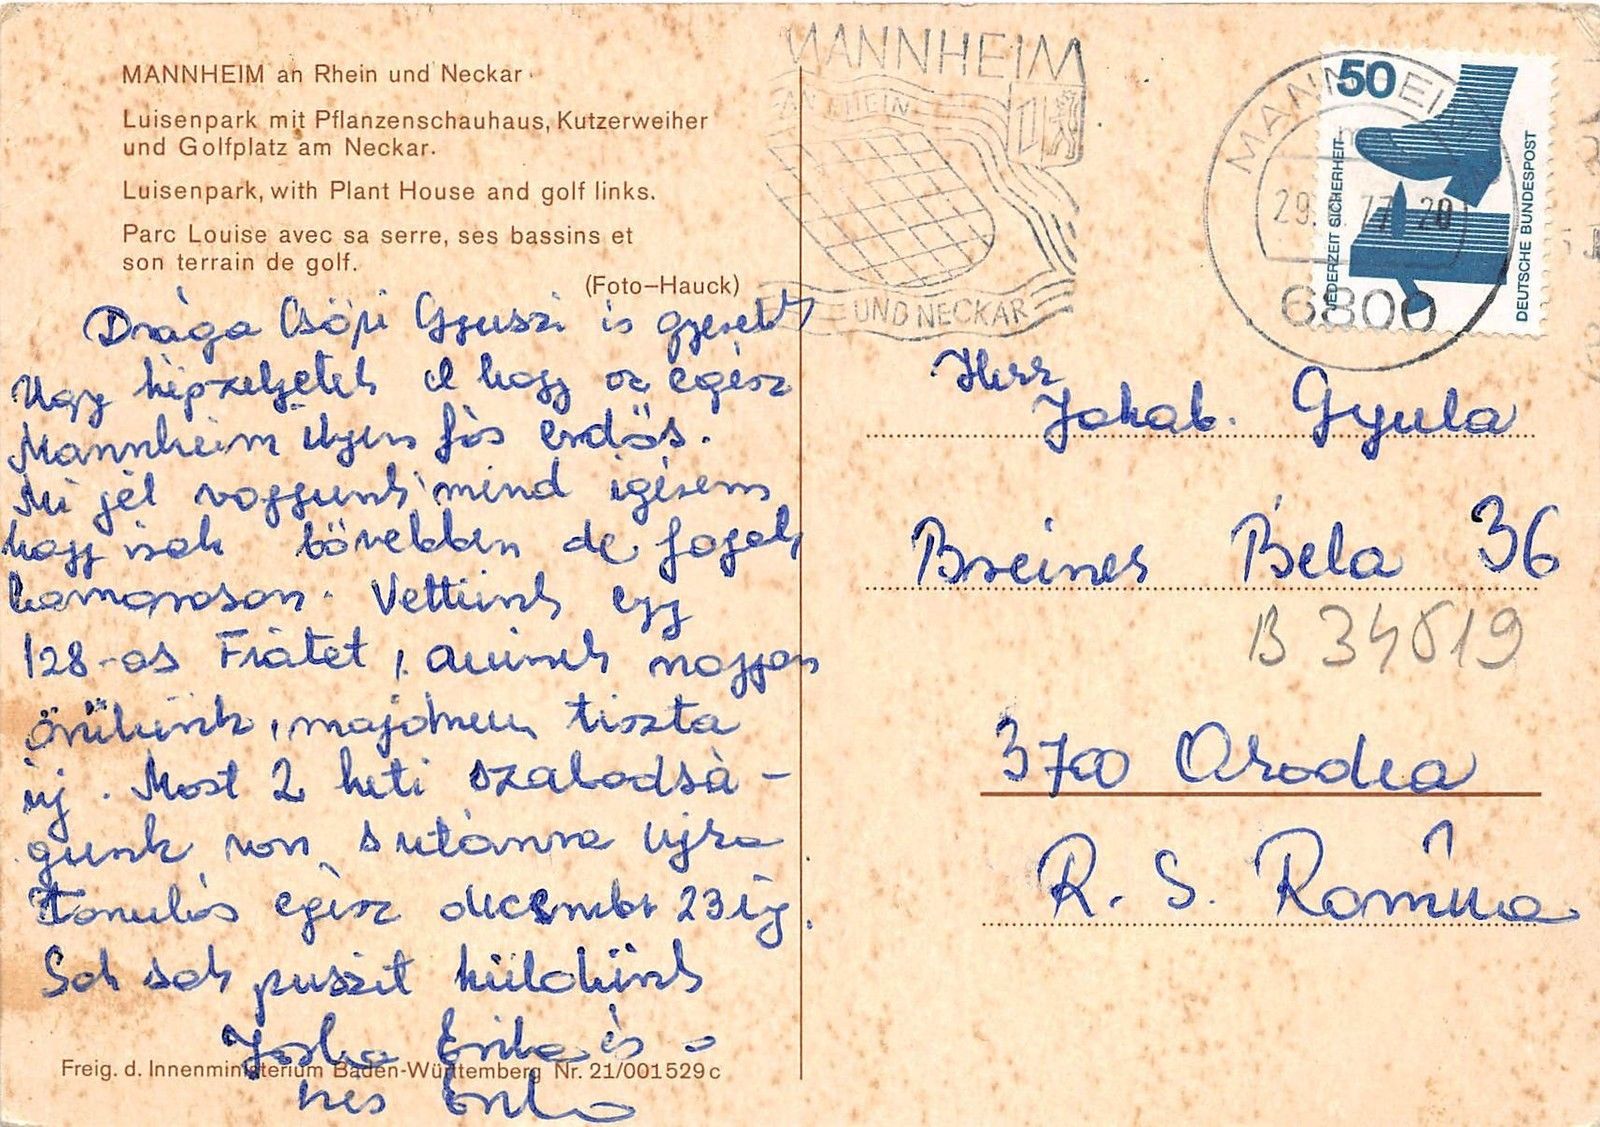 MANNHEIM an Rhein und Neckar
Luisenpark mit Pflanzenschauhaus, Kutzerweiher
und Golfplatz am Neckar.
Luisenpark, with Plant House and golf links.
Parc Louise avec sa serre, ses bassins et
son terrain de golf.
(Foto-Hauck)
Drága Csöpi Gyuszi és gyerek
Ugy képzeljétek el hogy az egész
Mannheim ilyen fás erdős.
Mi jól vagyunk mind igérem
hogy irok bővebben de
hamarosan. Vettünk egy
128-as Fiátet, aminek nagyon
örülünk, majdnem tiszta
új. Most 2 heti szabadsá-
gunk van, s utánna ujra
tanulás egész december 23ig.
Sok sok puszit küldünk
Joska Erika és a
kis Erika
Freig. d. Innenministerium Baden-Württemberg Nr. 21/001529c
MANNHEIM
AN RHEIN
UND NECKAR
MANNHEIM
29. 77-20
6800
50
JEDERZEIT SICHERHEIT
DEUTSCHE BUNDESPOST
Herr
Jakab. Gyula
Breiner Béla 36
B 34619
3700 Oradea
R. S. Romînă